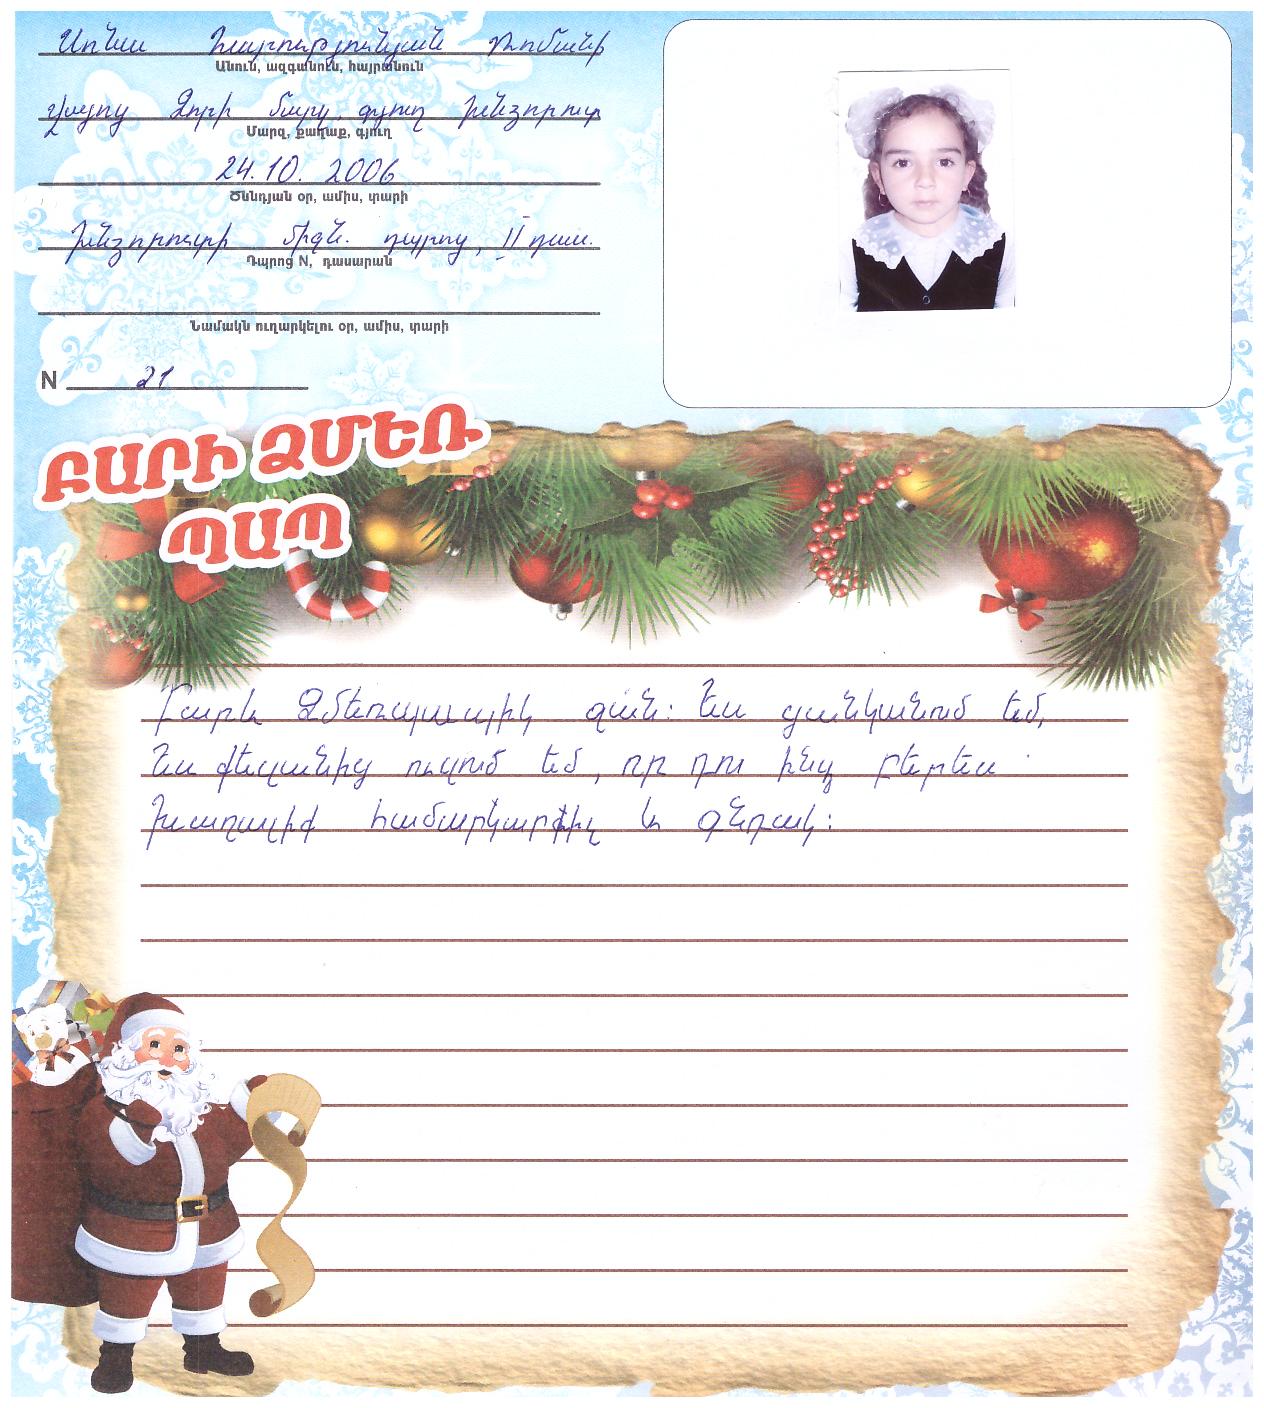 Աննա Հարությունյան Ռոմանի
Անուն, ազգանուն, հայրանուն
Վայոց Ձորի մարզ, գյուղ Խնձորուտ
Մարզ, քաղաք, գյուղ
24.10. 2006
Ծննդյան օր, ամիս, տարի
Խնձորուտի միջն. դպրոց, II դաս.
Դպրոց N, դասարան
Նամակն ուղարկելու օր, ամիս, տարի
N 21
ԲԱՐԻ ՁՄԵՌ
ՊԱՊ
Բարև Ձմեռպապիկ ջան: Ես ցանկանում եմ,
Ես քեզանից ուզում եմ, որ դու ինձ բերես
Խաղալիք համարկարգիչ և գնդակ: